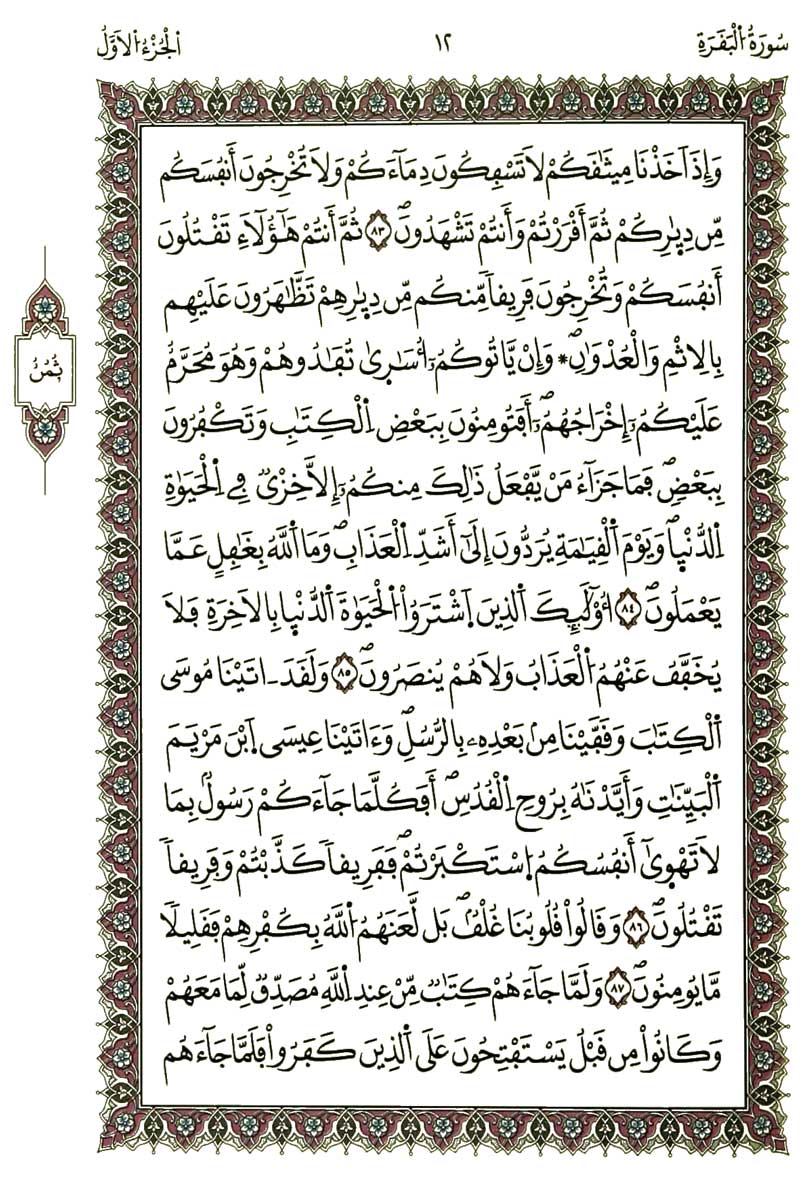 سُورَةُ الْبَقَرَةِ ١٢ اَلْجُزْءُ الْأَوَّلُ
وَإِذَ اَخَذْنَا مِيثَٰقَكُمْ لَا تَسْفِكُونَ دِمَآءَكُمْ وَلَا تُخْرِجُونَ أَنفُسَكُم
مِّن دِيٰ۪رِكُمْ ثُمَّ أَقْرَرْتُمْ وَأَنتُمْ تَشْهَدُونَۖ ٨٣ ثُمَّ أَنتُمْ هَٰٓؤُلَآءِ تَقْتُلُونَ
أَنفُسَكُمْ وَتُخْرِجُونَ فَرِيقاٗ مِّنكُم مِّن دِيٰ۪رِهِمْ تَظَّٰهَرُونَ عَلَيْهِم
بِالِاثْمِ وَالْعُدْوَٰنِۖ * وَإِنْ يَّاتُوكُمُۥٓ أُسَٰر۪ىٰ تُفَٰدُوهُمْ وَهُوَ مُحَرَّمٌ
ثُمُنُ
عَلَيْكُمُۥٓ إِخْرَاجُهُمُۥٓۖ أَفَتُومِنُونَ بِبَعْضِ اِ۬لْكِتَٰبِ وَتَكْفُرُونَ
بِبَعْضٖۖ فَمَا جَزَآءُ مَنْ يَّفْعَلُ ذَٰلِكَ مِنكُمُۥٓ إِلَّا خِزْيٞ فِے اِ۬لْحَيَوٰةِ
اِ۬لدُّنْي۪اۖ وَيَوْمَ اَ۬لْقِيَٰمَةِ يُرَدُّونَ إِلَىٰٓ أَشَدِّ اِ۬لْعَذَابِۖ وَمَا اَ۬للَّهُ بِغَٰفِلٍ عَمَّا
يَعْمَلُونَۖ ٨٤ أُوْلَٰٓئِكَ اَ۬لذِينَ اَ۪شْتَرَوُاْ اُ۬لْحَيَوٰةَ اَ۬لدُّنْي۪ا بِالَاخِرَةِ فَلَا
يُخَفَّفُ عَنْهُمُ اُ۬لْعَذَابُ وَلَا هُمْ يُنصَرُونَۖ ٨٥ وَلَقَدَ اٰتَيْنَا مُوسَى
اَ۬لْكِتَٰبَ وَقَفَّيْنَا مِنۢ بَعْدِهِۦ بِالرُّسُلِۖ وَءَاتَيْنَا عِيسَى اَ۪بْنَ مَرْيَمَ
اَ۬لْبَيِّنَٰتِ وَأَيَّدْنَٰهُ بِرُوحِ اِ۬لْقُدُسِۖ أَفَكُلَّمَا جَآءَكُمْ رَسُولُۢ بِمَا
لَا تَهْو۪ىٰٓ أَنفُسُكُمُ اُ۪سْتَكْبَرْتُمْۖ فَفَرِيقاٗ كَذَّبْتُمْ وَفَرِيقاٗ
تَقْتُلُونَۖ ٨٦ وَقَالُواْ قُلُوبُنَا غُلْفُۢۖ بَل لَّعَنَهُمُ اُ۬للَّهُ بِكُفْرِهِمْ فَقَلِيلاٗ
مَّا يُومِنُونَۖ ٨٧ وَلَمَّا جَآءَهُمْ كِتَٰبٞ مِّنْ عِندِ اِ۬للَّهِ مُصَدِّقٞ لِّمَا مَعَهُمْ
وَكَانُواْ مِن قَبْلُ يَسْتَفْتِحُونَ عَلَى اَ۬لذِينَ كَفَرُواْ فَلَمَّا جَآءَهُم